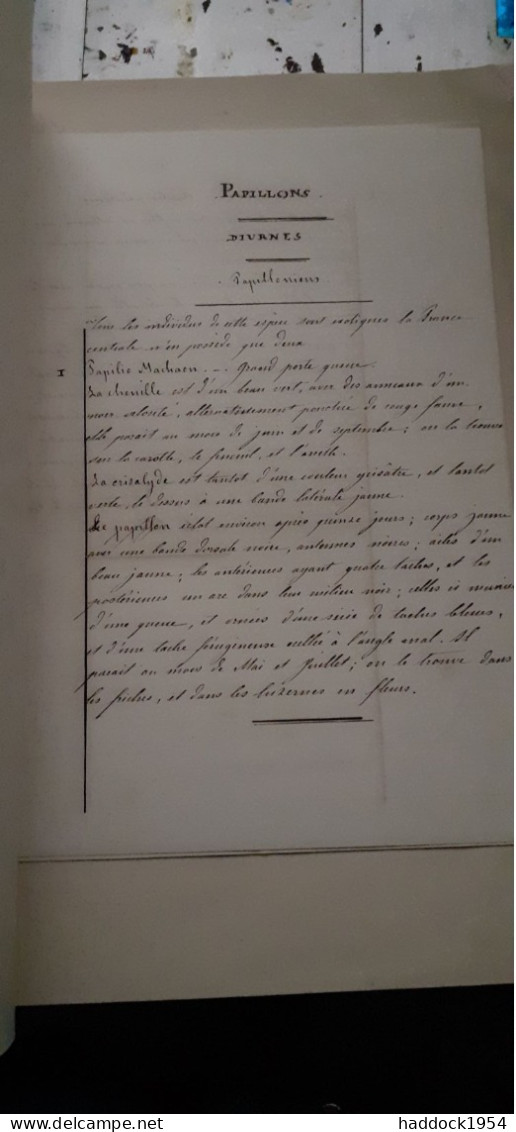 PAPILLONS.
DIURNES
Papilloniens
Tous les individus de cette espèce sont indigènes la France
centrale n'en possède que deux
1 Papilio Machaon ... Grand porte queue.
La chenille est d'un beau vert, avec des anneaux d'un
noir velouté, alternativement ponctué de rouge fauve,
elle parait au mois de juin et de septembre; on la trouve
sur la carotte, le fenouil, et l'aneth.
La crisalyde est tantot d'une couleur grisâtre, et tantot
verte le dessus à une bande latérale jaune.
Le papillon éclot environ après quinze jours; corps jaune
avec une bande dorsale noire, antennes noires; ailes d'un
beau jaune; les antérieures ayant quatre taches, et les
postérieures un arc dans leur milieu noir; celles ci munies
d'une queue, et ornées d'une série de taches bleues,
et d'une tache férugineuse à l'angle anal. Il
parait au mois de Mai et Juillet; on le trouve dans
les friches, et dans les luzernes en fleurs.
haddock1954